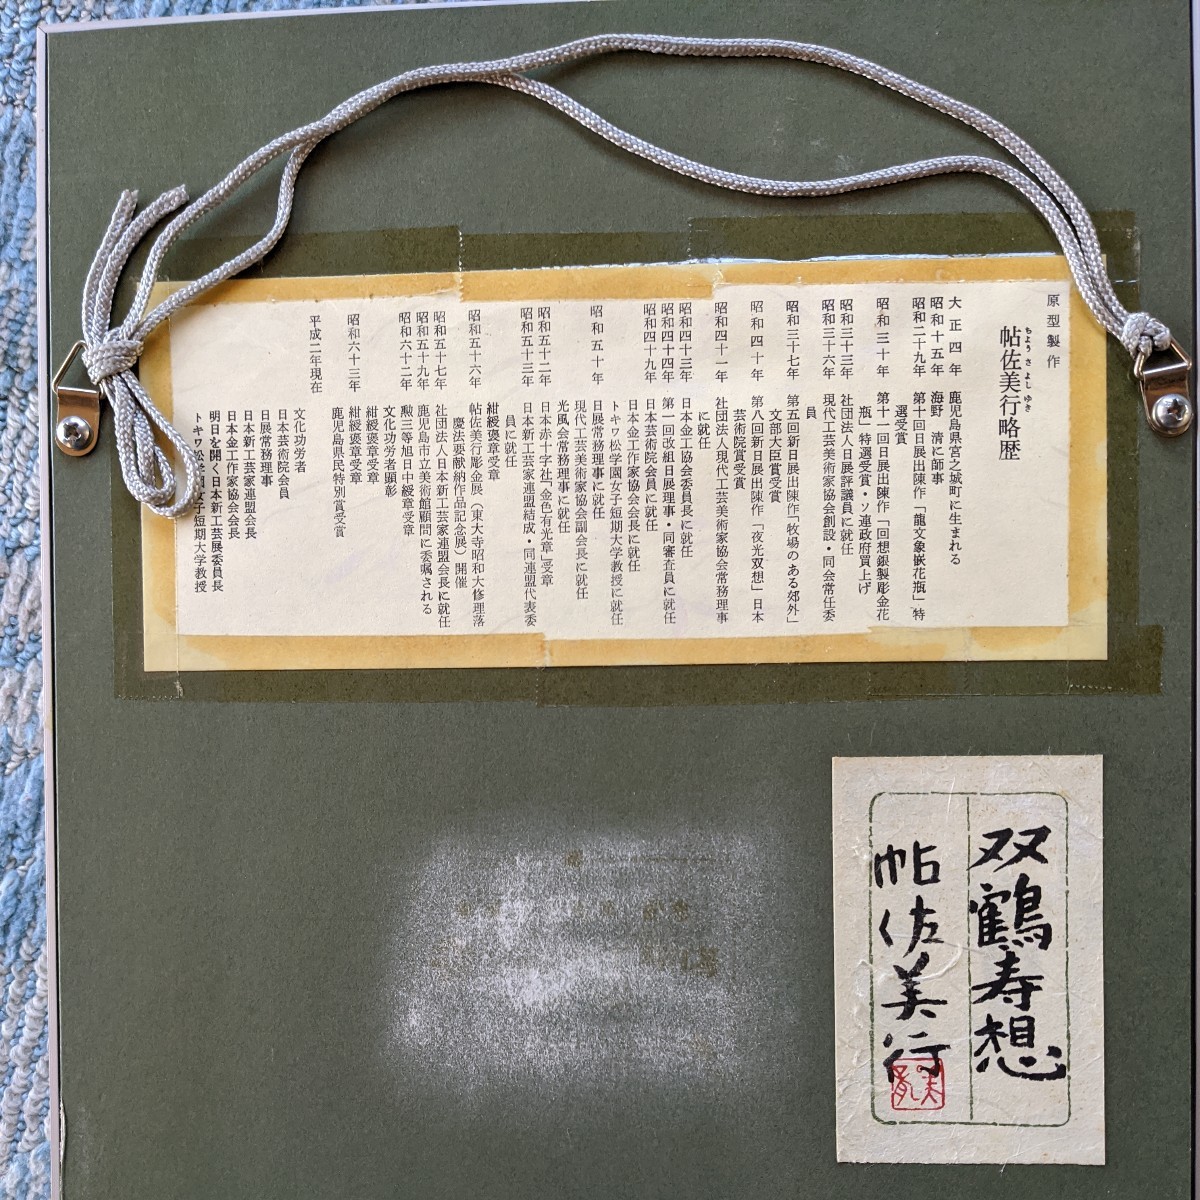 原型製作
ちょうさよしゆき
帖佐美行略歴
大正四年 鹿児島県宮之城町に生まれる
昭和十五年 海野 清に師事
昭和二十九年 第十回日展出陳作「龍文象嵌花瓶」特
選受賞
昭和三十年 第十一回日展出陳作「回想銀製彫金花
瓶」特選受賞・ソ連政府買上げ
昭和三十三年 社団法人日展評議員に就任
昭和三十六年 現代工芸美術家協会創設・同会常任委
員
昭和三十七年 第五回新日展出陳作「牧場のある郊外」
文部大臣賞受賞
昭和四十年 第八回新日展出陳作「夜光双想」日本
芸術院賞受賞
昭和四十一年 社団法人現代工芸美術家協会常務理事
に就任
昭和四十三年 日本金工協会委員長に就任
昭和四十四年 第一回改組日展理事・同審査員に就任
昭和四十九年 日本芸術院会員に就任
日本金工作家協会会長に就任
トキワ松学園女子短期大学教授に就任
昭和五十年 日展常務理事に就任
現代工芸美術家協会副会長に就任
光風会常務理事に就任
昭和五十二年 日本赤十字社「金色有光章」受章
昭和五十三年 日本新工芸家連盟結成・同連盟代表委
員に就任
紺綬褒章受章
昭和五十六年 帖佐美行彫金展（東大寺昭和大修理落
慶法要献納作品記念展）開催
昭和五十七年 社団法人日本新工芸家連盟会長に就任
昭和五十九年 鹿児島市立美術館顧問に委嘱される
昭和六十二年 勲三等旭日中綬章受章
文化功労者顕彰
紺綬褒章受章
昭和六十三年 紺綬褒章受章
鹿児島県民特別賞受賞
平成二年現在
文化功労者
日本芸術院会員
日展常務理事
日本新工芸家連盟会長
日本金工作家協会会長
明日を開く日本新工芸展委員長
トキワ松学園女子短期大学教授
双鶴寿想
帖佐美行